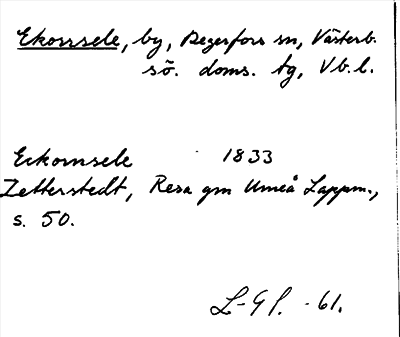 Ekorrsele, by, Degerfors sn, Västerb.
sö. doms. tg, Vb. l.
Eckornsele 1833
Zetterstedt, Resa gm Umeå Lappm.,
s. 50.
L-G L. -61.